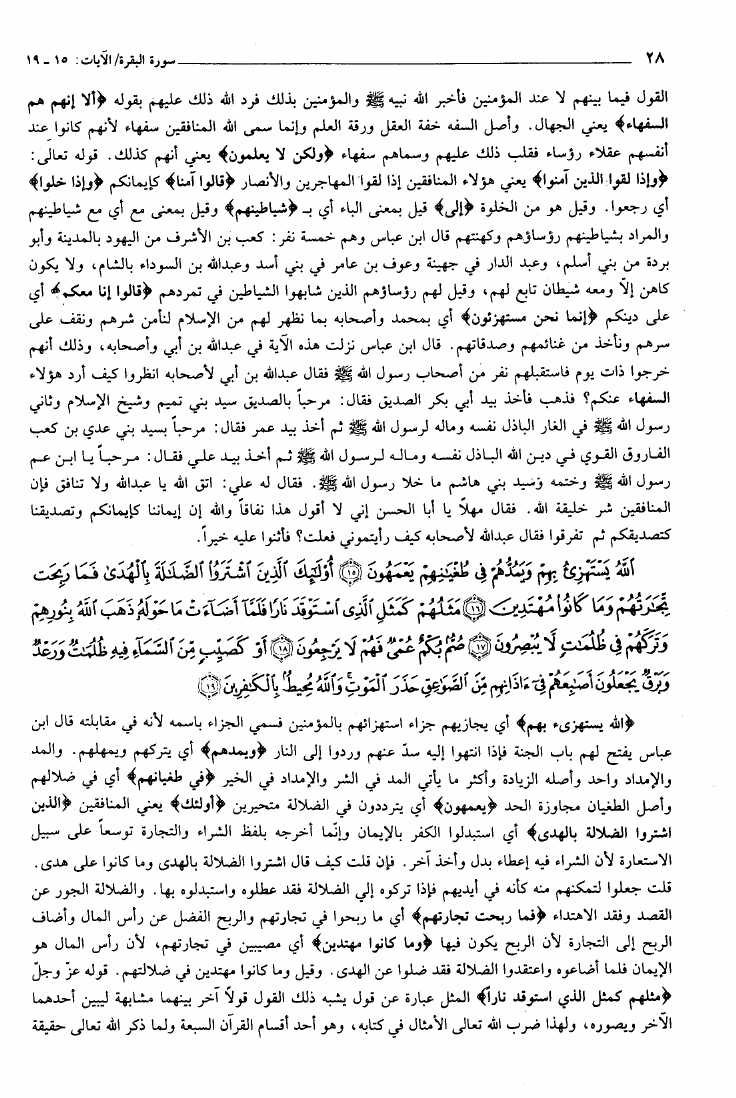 ٢٨ ــــــ سورة البقرة/ الآيات: ١٥ ـ ١٩
القول فيما بينهم لا عند المؤمنين فأخبر الله نبيه ﷺ والمؤمنين بذلك فرد الله ذلك عليهم بقوله ﴿ألا إنهم هم
السفهاء﴾ يعني الجهال. وأصل السفه خفة العقل ورقة العلم وإنما سمى الله المنافقين سفهاء لأنهم كانوا عند
أنفسهم عقلاء رؤساء فقلب ذلك عليهم وسماهم سفهاء ﴿ولكن لا يعلمون﴾ يعني أنهم كذلك. قوله تعالى:
﴿وإذا لقوا الذين آمنوا﴾ يعني هؤلاء المنافقين إذا لقوا المهاجرين والأنصار ﴿قالوا آمنا﴾ كإيمانكم ﴿وإذا خلوا﴾
أي رجعوا. وقيل هو من الخلوة ﴿إلى﴾ قيل بمعنى الباء أي بـ ﴿شياطينهم﴾ وقيل بمعنى مع أي مع شياطينهم
والمراد بشياطينهم رؤساؤهم وكهنتهم قال ابن عباس وهم خمسة نفر: كعب بن الأشرف من اليهود بالمدينة وأبو
بردة من بني أسلم، وعبد الدار في جهينة وعوف بن عامر في بني أسد وعبدالله بن السوداء بالشام، ولا يكون
كاهن إلاّ ومعه شيطان تابع لهم، وقيل لهم رؤساؤهم الذين شابهوا الشياطين في تمردهم ﴿قالوا إنا معكم﴾ أي
على دينكم ﴿إنما نحن مستهزئون﴾ أي بمحمد وأصحابه بما نظهر لهم من الإسلام لنأمن شرهم ونقف على
سرهم ونأخذ من غنائمهم وصدقاتهم. قال ابن عباس نزلت هذه الآية في عبدالله بن أبي وأصحابه، وذلك أنهم
خرجوا ذات يوم فاستقبلهم نفر من أصحاب رسول الله ﷺ فقال عبدالله بن أبي لأصحابه انظروا كيف أرد هؤلاء
السفهاء عنكم؟ فذهب فأخذ بيد أبي بكر الصديق فقال: مرحباً بالصديق سيد بني تميم وشيخ الإسلام وثاني
رسول الله ﷺ في الغار الباذل نفسه وماله لرسول الله ﷺ ثم أخذ بيد عمر فقال: مرحباً بسيد بني عدي بن كعب
الفاروق القوي في دين الله الباذل نفسه وماله لرسول الله ﷺ ثم أخذ بيد علي فقال: مرحباً يا ابن عم
رسول الله ﷺ وختمه وسيد بني هاشم ما خلا رسول الله ﷺ. فقال له علي: اتق الله يا عبدالله ولا تنافق فإن
المنافقين شر خليقة الله. فقال مهلاً يا أبا الحسن إني لا أقول هذا نفاقاً والله إن إيماننا كإيمانكم وتصديقنا
كتصديقكم ثم تفرقوا فقال عبدالله لأصحابه كيف رأيتموني فعلت؟ فأثنوا عليه خيراً.
ٱللَّهُ يَسْتَهْزِئُ بِهِمْ وَيَمُدُّهُمْ فِي طُغْيَٰنِهِمْ يَعْمَهُونَ ۝١٥ أُوْلَٰٓئِكَ ٱلَّذِينَ ٱشْتَرَوُاْ ٱلضَّلَٰلَةَ بِٱلْهُدَىٰ فَمَا رَبِحَت
تِّجَٰرَتُهُمْ وَمَا كَانُواْ مُهْتَدِينَ ۝١٦ مَثَلُهُمْ كَمَثَلِ ٱلَّذِى ٱسْتَوْقَدَ نَارًا فَلَمَّآ أَضَآءَتْ مَا حَوْلَهُۥ ذَهَبَ ٱللَّهُ بِنُورِهِمْ
وَتَرَكَهُمْ فِى ظُلُمَٰتٍ لَّا يُبْصِرُونَ ۝١٧ صُمٌّۢ بُكْمٌ عُمْىٌ فَهُمْ لَا يَرْجِعُونَ ۝١٨ أَوْ كَصَيِّبٍ مِّنَ ٱلسَّمَآءِ فِيهِ ظُلُمَٰتٌ وَرَعْدٌ
وَبَرْقٌ يَجْعَلُونَ أَصَٰبِعَهُمْ فِىٓ ءَاذَانِهِم مِّنَ ٱلصَّوَٰعِقِ حَذَرَ ٱلْمَوْتِ ۚ وَٱللَّهُ مُحِيطٌۢ بِٱلْكَٰفِرِينَ ۝١٩
﴿الله يستهزىء بهم﴾ أي يجازيهم جزاء استهزائهم بالمؤمنين فسمي الجزاء باسمه لأنه في مقابلته قال ابن
عباس يفتح لهم باب الجنة فإذا انتهوا إليه سدّ عنهم وردوا إلى النار ﴿ويمدهم﴾ أي يتركهم ويمهلهم. والمد
والإمداد واحد وأصله الزيادة وأكثر ما يأتي المد في الشر والإمداد في الخير ﴿في طغيانهم﴾ أي في ضلالهم
وأصل الطغيان مجاوزة الحد ﴿يعمهون﴾ أي يترددون في الضلالة متحيرين ﴿أولئك﴾ يعني المنافقين ﴿الذين
اشتروا الضلالة بالهدى﴾ أي استبدلوا الكفر بالإيمان وإنّما أخرجه بلفظ الشراء والتجارة توسعاً على سبيل
الاستعارة لأن الشراء فيه إعطاء بدل وأخذ آخر. فإن قلت كيف قال اشتروا الضلالة بالهدى وما كانوا على هدى.
قلت جعلوا لتمكنهم منه كأنه في أيديهم فإذا تركوه إلي الضلالة فقد عطلوه واستبدلوه بها. والضلالة الجور عن
القصد وفقد الاهتداء ﴿فما ربحت تجارتهم﴾ أي ما ربحوا في تجارتهم والربح الفضل عن رأس المال وأضاف
الربح إلى التجارة لأن الربح يكون فيها ﴿وما كانوا مهتدين﴾ أي مصيبين في تجارتهم، لأن رأس المال هو
الإيمان فلما أضاعوه واعتقدوا الضلالة فقد ضلوا عن الهدى. وقيل وما كانوا مهتدين في ضلالتهم. قوله عزّ وجلّ
﴿مثلهم كمثل الذي استوقد ناراً﴾ المثل عبارة عن قول يشبه ذلك القول قولاً آخر بينهما مشابهة ليبين أحدهما
الآخر ويصوره، ولهذا ضرب الله تعالى الأمثال في كتابه، وهو أحد أقسام القرآن السبعة ولما ذكر الله تعالى حقيقة